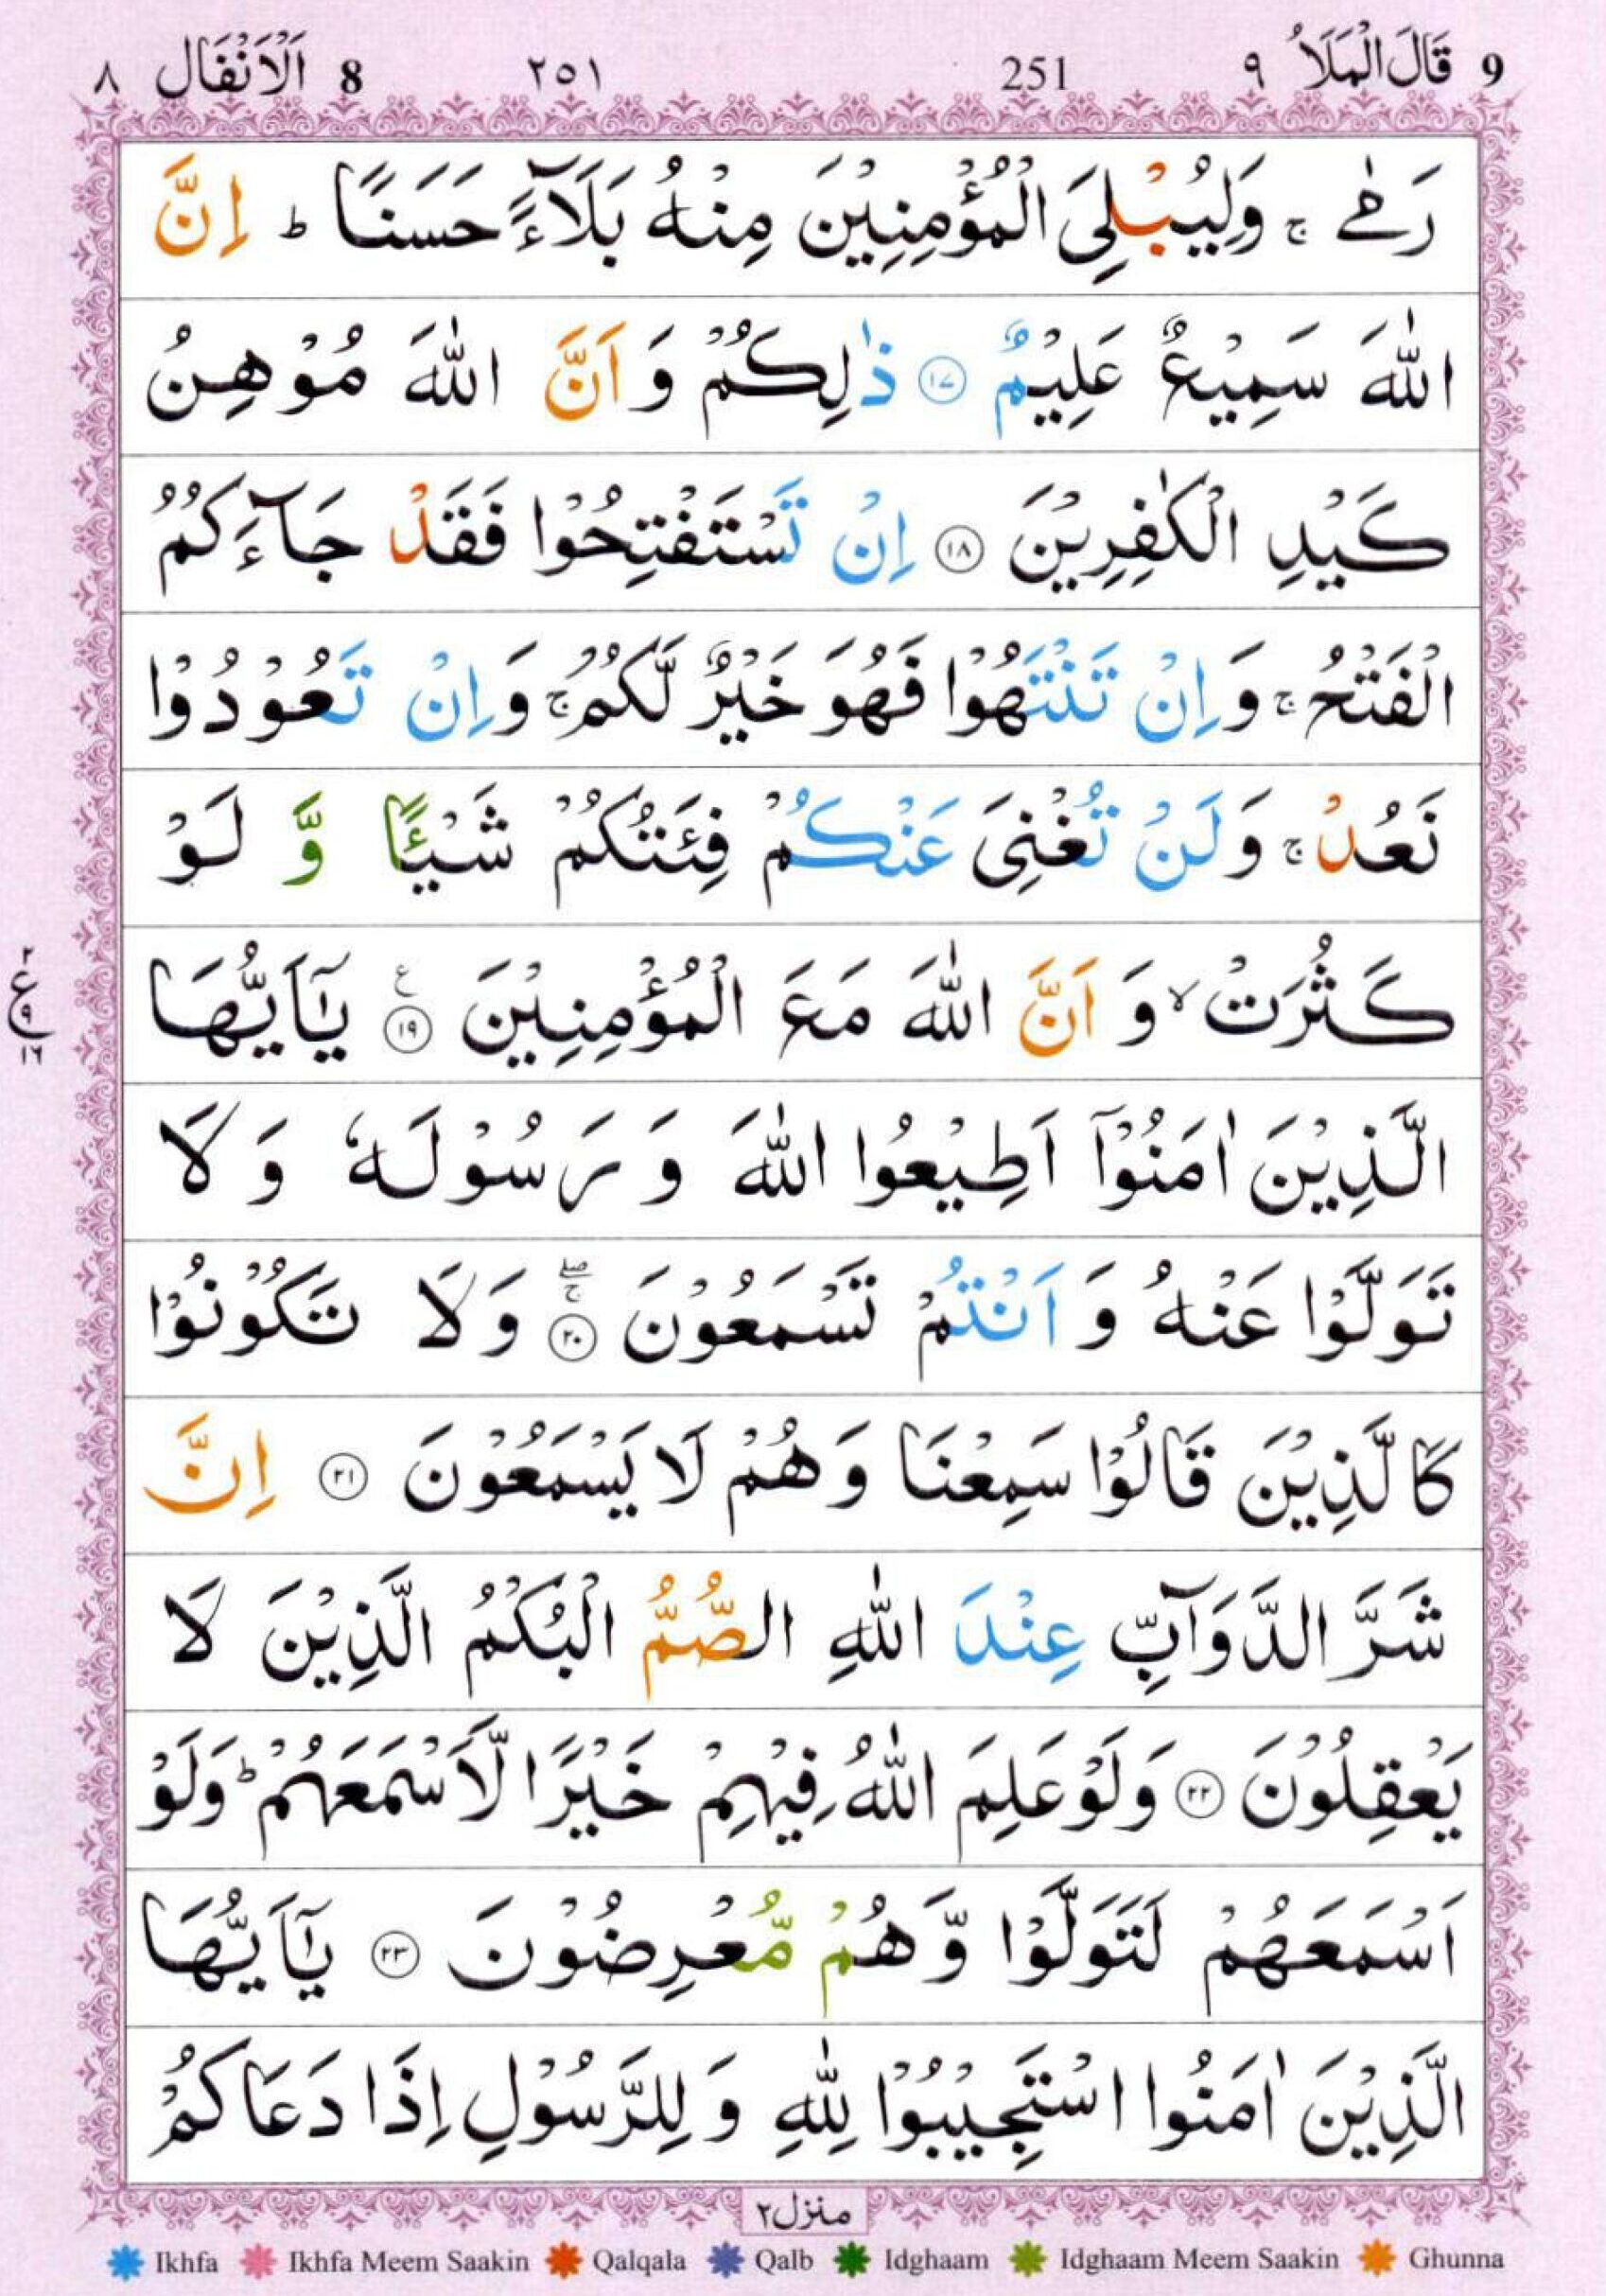 9 قَالَ الْمَلَاُ ٩ 251 ٢٥١ 8 اَلْاَنْفَال ٨
رَمٰى ۚ وَلِيُبْلِىَ الْمُؤْمِنِيْنَ مِنْهُ بَلَآءً حَسَنًا ؕ اِنَّ
اللّٰهَ سَمِيْعٌ عَلِيْمٌ ۝١٧ ذٰلِكُمْ وَ اَنَّ اللّٰهَ مُوْهِنُ
كَيْدِ الْكٰفِرِيْنَ ۝١٨ اِنْ تَسْتَفْتِحُوْا فَقَدْ جَآءَكُمُ
الْفَتْحُ ۚ وَ اِنْ تَنْتَهُوْا فَهُوَ خَيْرٌ لَّكُمْ ۚ وَ اِنْ تَعُوْدُوْا
نَعُدْ ۚ وَ لَنْ تُغْنِىَ عَنْكُمْ فِئَتُكُمْ شَيْـًٔا وَّ لَوْ
كَثُرَتْ ۙ وَ اَنَّ اللّٰهَ مَعَ الْمُؤْمِنِيْنَ ۝١٩ ع يٰۤاَيُّهَا
ع ٢ ٩ ١٦
الَّذِيْنَ اٰمَنُوْۤا اَطِيْعُوا اللّٰهَ وَ رَسُوْلَهٗ وَ لَا
تَوَلَّوْا عَنْهُ وَ اَنْتُمْ تَسْمَعُوْنَ ۝٢٠ ۚۖ وَ لَا تَكُوْنُوْا
كَالَّذِيْنَ قَالُوْا سَمِعْنَا وَ هُمْ لَا يَسْمَعُوْنَ ۝٢١ اِنَّ
شَرَّ الدَّوَآبِّ عِنْدَ اللّٰهِ الصُّمُّ الْبُكْمُ الَّذِيْنَ لَا
يَعْقِلُوْنَ ۝٢٢ وَ لَوْ عَلِمَ اللّٰهُ فِيْهِمْ خَيْرًا لَّاَسْمَعَهُمْ ؕ وَ لَوْ
اَسْمَعَهُمْ لَتَوَلَّوْا وَّ هُمْ مُّعْرِضُوْنَ ۝٢٣ يٰۤاَيُّهَا
الَّذِيْنَ اٰمَنُوا اسْتَجِيْبُوْا لِلّٰهِ وَ لِلرَّسُوْلِ اِذَا دَعَاكُمْ
منزل ٢
Ikhfa Ikhfa Meem Saakin Qalqala Qalb Idghaam Idghaam Meem Saakin Ghunna